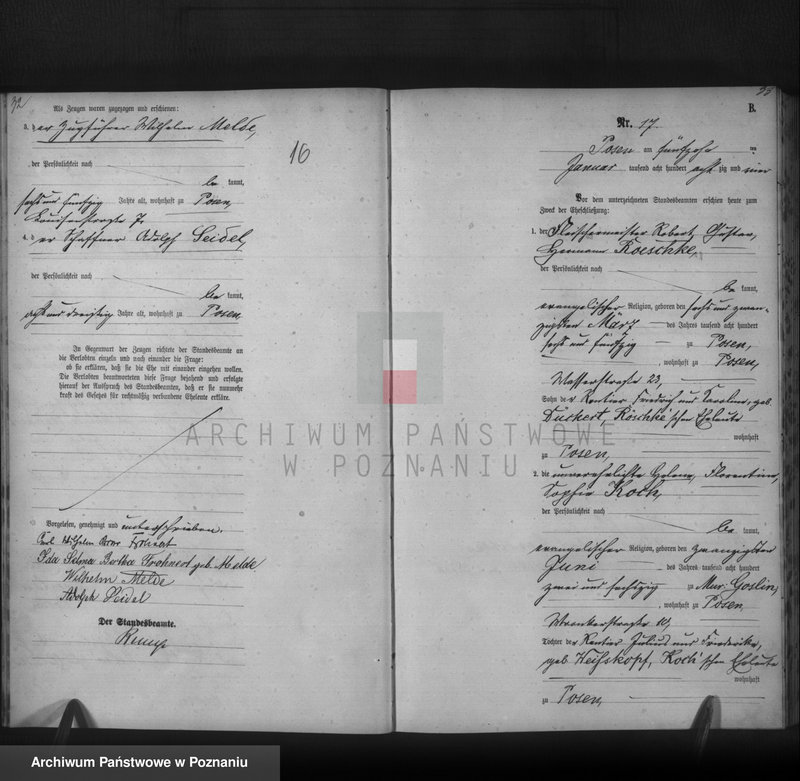 32
Als Zeugen waren zugezogen und erschienen:
3. der Zugführer Wilhelm Melde,
der Persönlichkeit nach
be kannt,
sechs und fünfzig Jahre alt, wohnhaft zu Posen,
Louisenstraße 7.
4. der Schaffner Adolph Seidel,
der Persönlichkeit nach
be kannt,
acht und dreißig Jahre alt, wohnhaft zu Posen
In Gegenwart der Zeugen richtete der Standesbeamte an
die Verlobten einzeln und nach einander die Frage:
ob sie erklären, daß sie die Ehe mit einander eingehen wollen.
Die Verlobten beantworteten diese Frage bejahend und erfolgte
hierauf der Ausspruch des Standesbeamten, daß er sie nunmehr
kraft des Gesetzes für rechtmäßig verbundene Eheleute erkläre.
Vorgelesen, genehmigt und unterschrieben.
Wilhelm
Ida Selma Bertha Frohnert geb. Melde
Wilhelm Melde
Adolph Seidel
Der Standesbeamte.
16
B.
Nr. 17.
Posen am fünfzehn ten
Januar tausend acht hundert acht zig und vier
Vor dem unterzeichneten Standesbeamten erschien heute zum
Zweck der Eheschließung:
1. der Fleischermeister Robert, Gustav,
Hermann Roeschke,
der Persönlichkeit nach
be kannt,
evangelischer Religion, geboren den sechs und zwan-
zigsten März des Jahres tausend acht hundert
sechs und fünfzig zu Posen,
, wohnhaft zu Posen,
Wasserstraße 23,
Sohn der Rentier Friedrich und Karoline, geb.
Duckert, Röschke'schen Eheleute
wohnhaft
zu Posen,
2. die unverehelichte Helene, Florentine,
Sophie Koch,
der Persönlichkeit nach
be kannt,
evangelischer Religion, geboren den zwanzigsten
Juni des Jahres tausend acht hundert
zwei und sechszig zu Mur: Goslin,
, wohnhaft zu Posen,
Wronkerstraße 10,
Tochter der Rentier Julius und Friederike,
geb. Weihskopf, Koch'schen Eheleute
wohnhaft
zu Posen,
ARCHIWUM PAŃSTWOWE
W POZNANIU
Archiwum Państwowe w Poznaniu